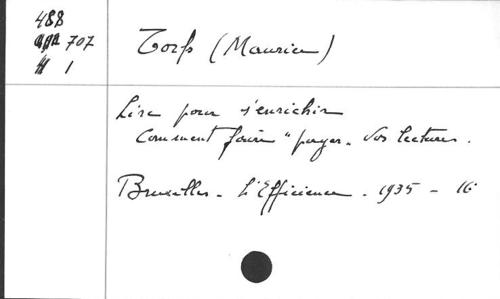 488
707
1
Torfs (Maurice)
Lire pour s'enrichir
Comment faire "payer" vos lectures.
Bruxelles - L'Efficience - 1935 - 16°